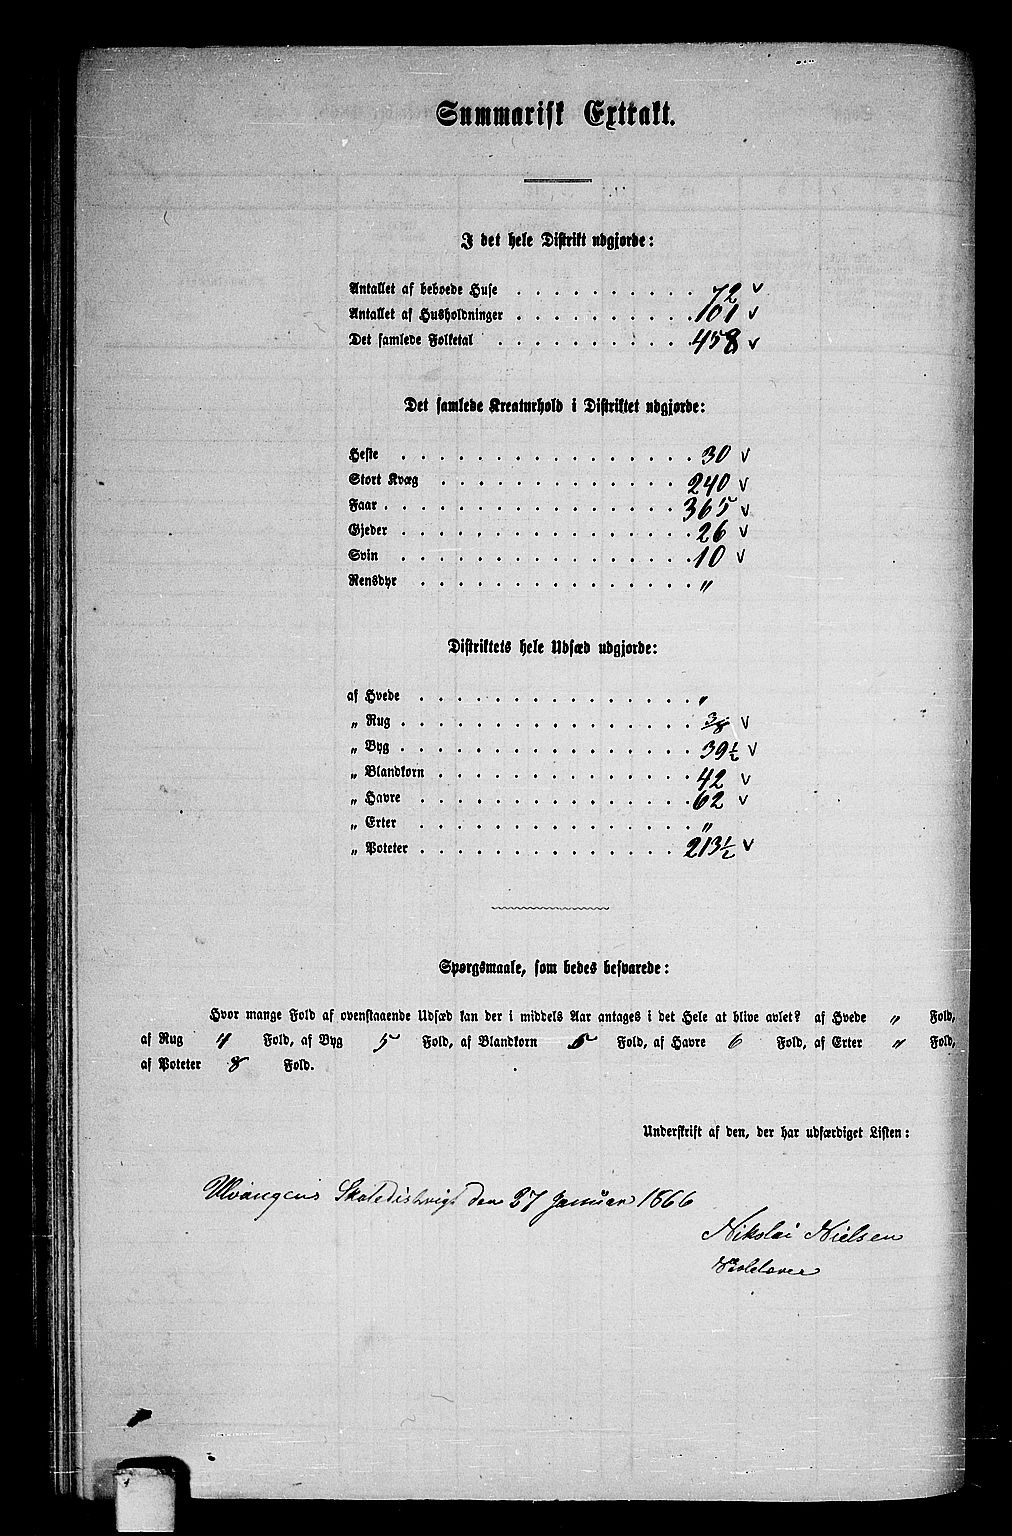 Summarisk Extrakt.
I det hele Distrikt udgjorde:
Antallet af beboede Huse . . . . . . . . . . 72 v
Antallet af Husholdninger . . . . . . . . . . 101 v
Det samlede Folketal . . . . . . . . . . . 458 v
Det samlede Kreaturhold i Distriktet udgjorde:
Heste . . . . . . . . . . . . . . . . 30 v
Stort Kvæg . . . . . . . . . . . . . 240 v
Faar . . . . . . . . . . . . . . . . 365 v
Gjeder . . . . . . . . . . . . . . . . 26 v
Svin . . . . . . . . . . . . . . . . 10 v
Rensdyr . . . . . . . . . . . . . . . "
Distriktets hele Udsæd udgjorde:
af Hvede . . . . . . . . . . . . . . . "
„ Rug . . . . . . . . . . . . . . . . 3/8 v
„ Byg . . . . . . . . . . . . . . . . 39 1/2 v
„ Blandkorn . . . . . . . . . . . . . . 42 v
„ Havre . . . . . . . . . . . . . . . 62 v
„ Erter . . . . . . . . . . . . . . . "
„ Poteter . . . . . . . . . . . . . . 213 1/2 v
Spørgsmaale, som bedes besvarede:
Hvor mange Fold af ovenstaaende Udsæd kan der i middels Aar antages i det Hele at blive avlet? af Hvede " Fold,
af Rug 4 Fold, af Byg 5 Fold, af Blandkorn 5 Fold, af Havre 6 Fold, af Erter " Fold,
af Poteter 8 Fold.
Underskrift af den, der har udfærdiget Listen:
Skoledistrigt den 27 Januar 1866
Nikolai Nielsen